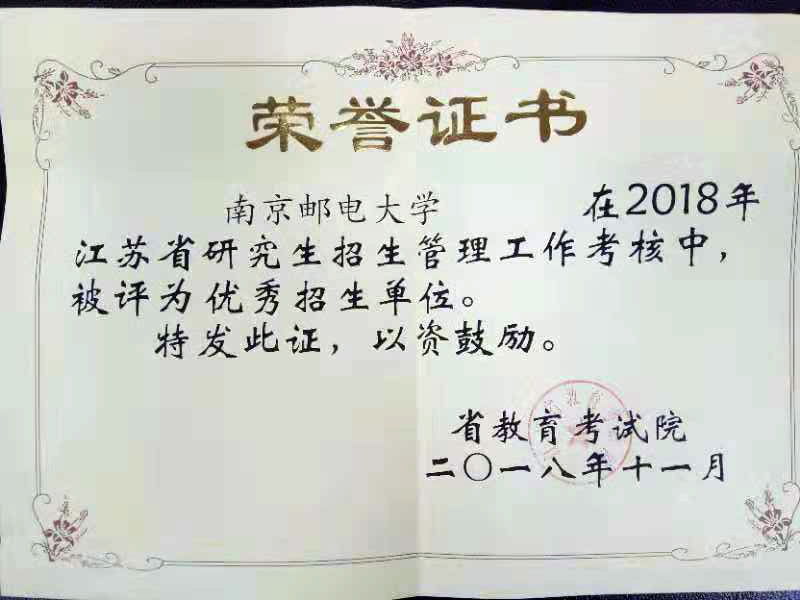 荣誉证书
南京邮电大学 在2018年
江苏省研究生招生管理工作考核中，
被评为优秀招生单位。
特发此证，以资鼓励。
省教育考试院
二〇一八年十一月